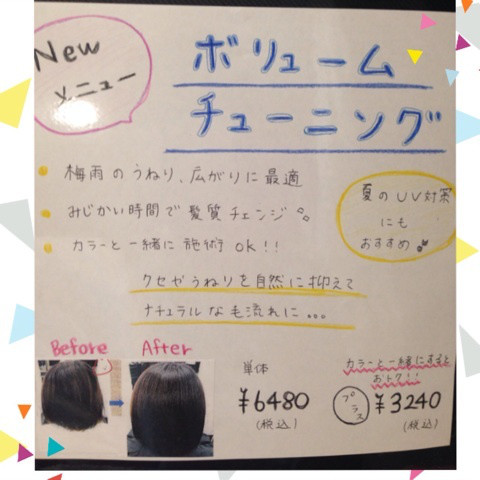 New
メニュー
ボリューム
チューニング
梅雨のうねり、広がりに最適
みじかい時間で髪質チェンジ
カラーと一緒に施術OK!!
夏のUV対策
にも
おすすめ
クセやうねりを自然に抑えて
ナチュラルな毛流れに...
Before
After
単体
¥6480
(税込)
カラーと一緒にすると
おトク!!
プラス
¥3240
(税込)